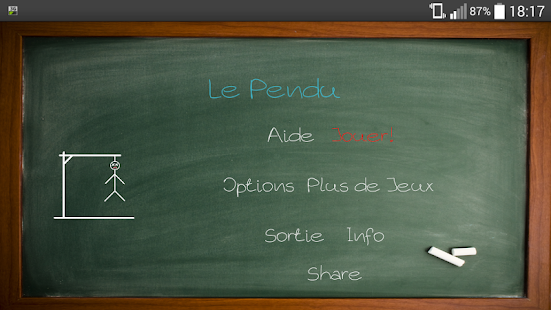 87% 18:17
Le Pendu
Aide Jouer
Options Plus de Jeux
Sortie Info
Share